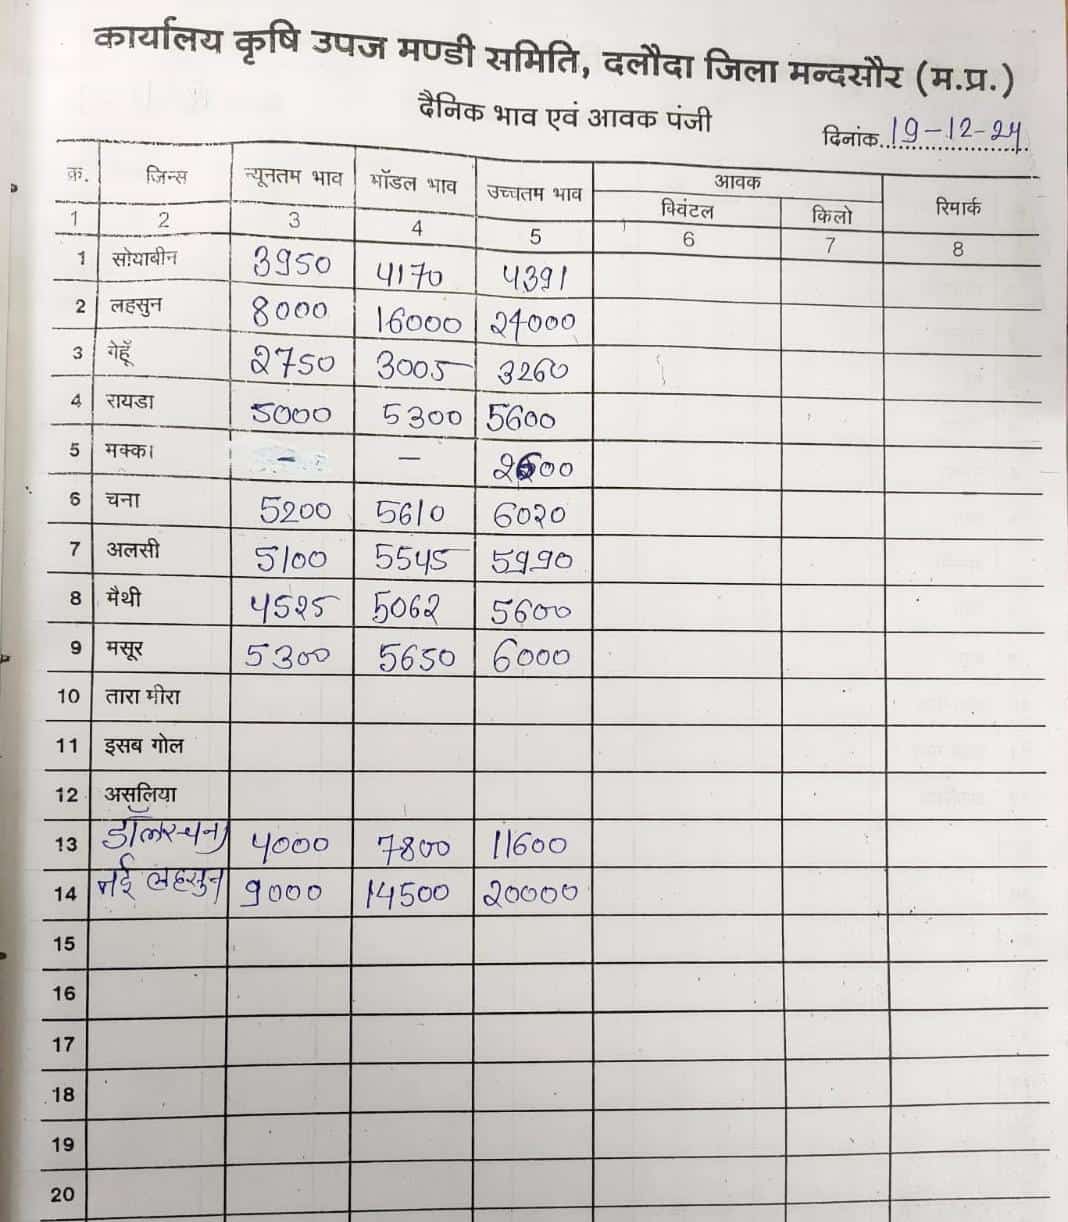 कार्यालय कृषि उपज मण्डी समिति, दलौदा जिला मन्दसौर (म.प्र.)
दैनिक भाव एवं आवक पंजी
दिनांक..19-12-24
क्र. जिन्स न्यूनतम भाव मॉडल भाव उच्चतम भाव आवक रिमार्क
क्विंटल किलो
1 2 3 4 5 6 7 8
1 सोयाबीन 3950 4170 4391
2 लहसुन 8000 16000 24000
3 गेहूँ 2750 3005 3260
4 रायडा 5000 5300 5600
5 मक्का - - 2600
6 चना 5200 5610 6020
7 अलसी 5100 5545 5990
8 मैथी 4525 5062 5600
9 मसूर 5300 5650 6000
10 तारा मीरा
11 इसब गोल
12 असलिया
13 डॉलर चना 4000 7800 11600
14 नई लहसुन 9000 14500 20000
15
16
17
18
19
20